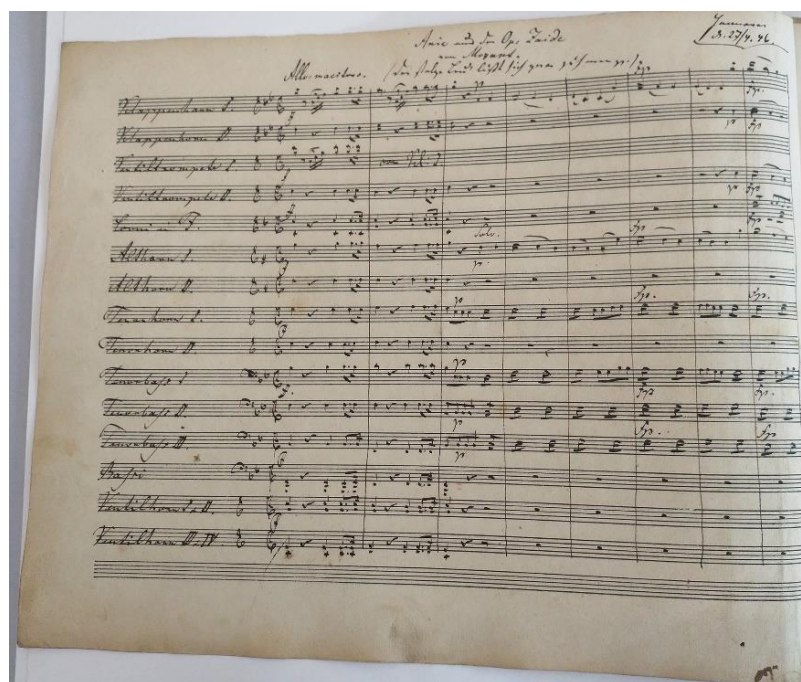 d. 27/4. 46.
Arie aus der Opr. Zaide
von Mozart.
All. maestoso. (Der stolze Leu läßt sich zwar zähmen pp.)
Klappenhorn I.
Klappenhorn II.
Ventiltrompete I. Vl. I.
Ventiltrompete II.
Corni in F.
Solo.
Althorn I.
Althorn II.
Tenorhorn I.
Tenorhorn II.
Tenorbaß I
Tenorbaß II.
Tenorbaß III.
Bassi
Ventilhorn I. u. II.
Ventilhorn III. u. IV.